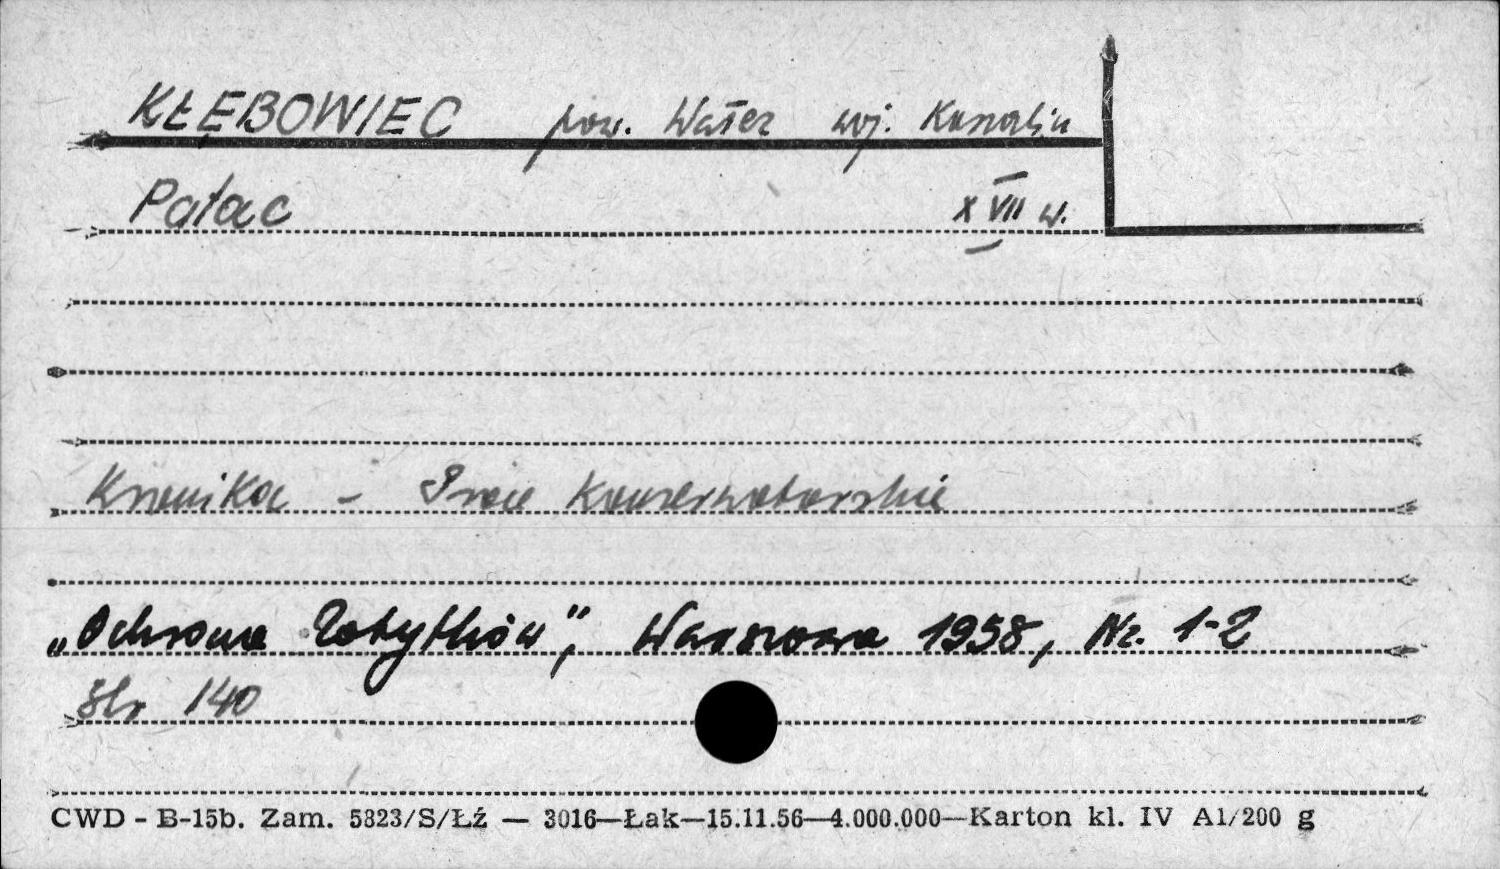 KŁĘBOWIEC pow. Wałcz woj. Koszalin
Pałac XVII w.
Kronika - Prace Konserwatorskie
„Ochrona Zabytków”, Warszawa 1958, Nr. 1-2
Str 140
CWD - B-15b. Zam. 5823/S/Łź — 3016—Łak—15.11.56—4.000.000—Karton kl. IV A1/200 g